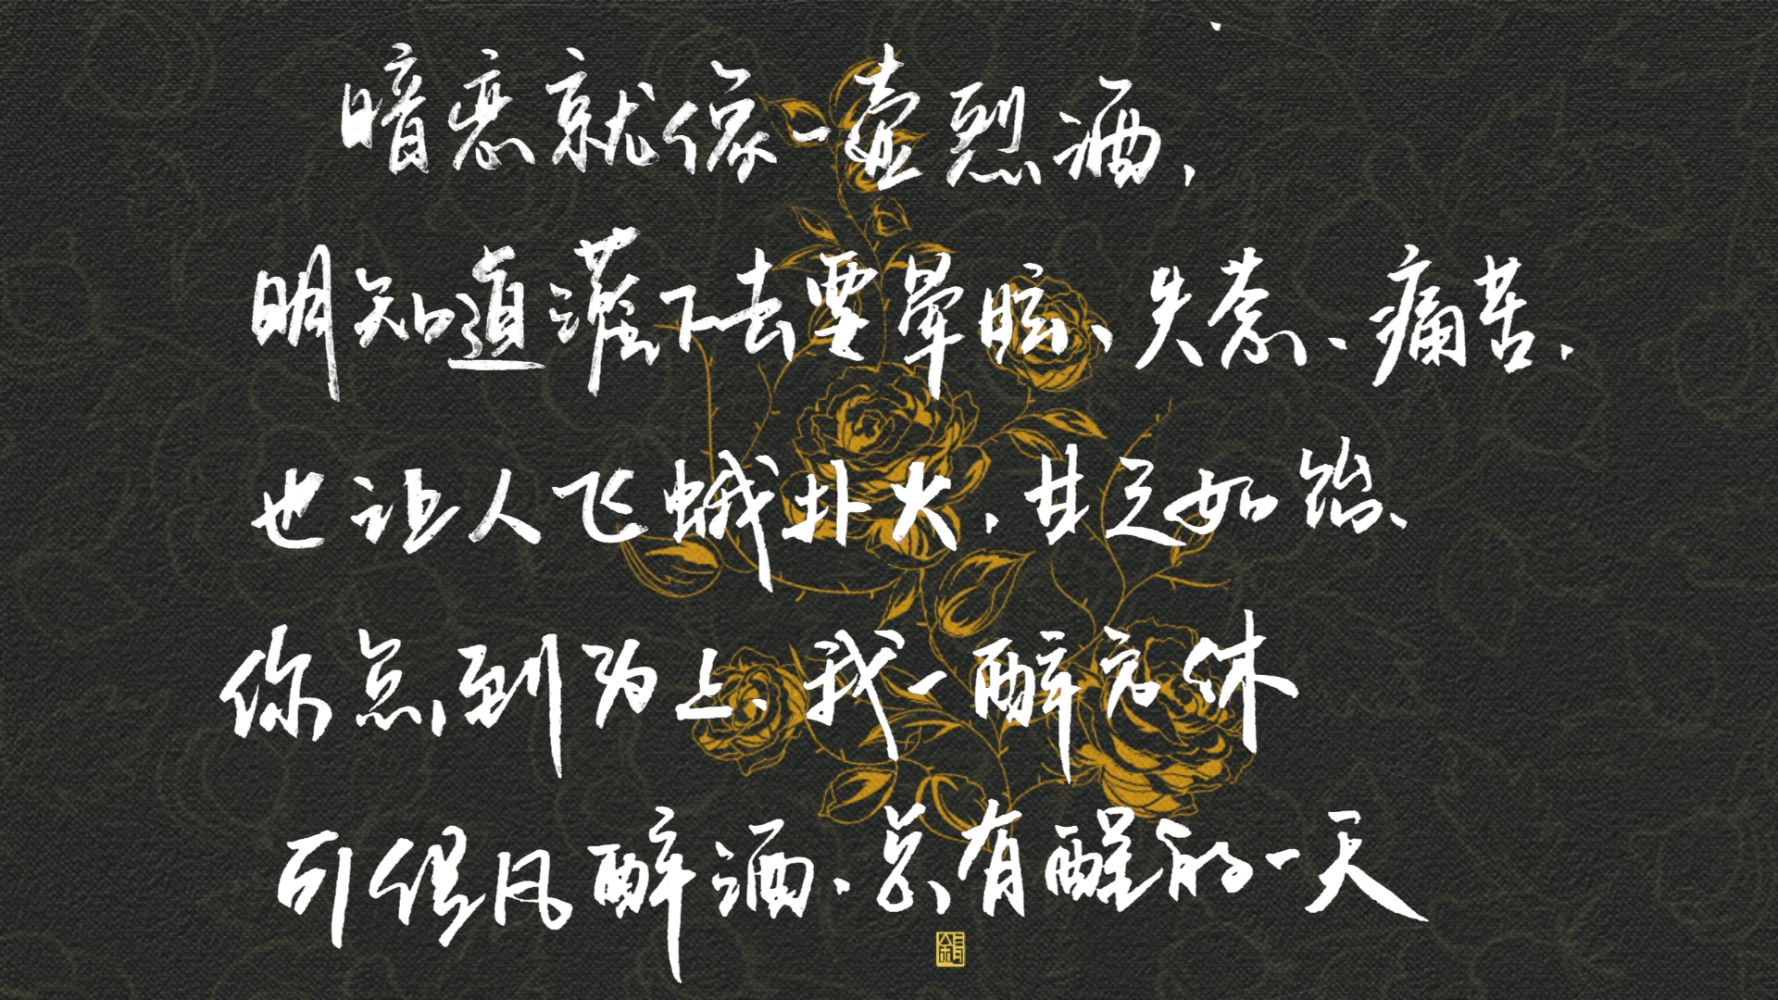 暗恋就像一壶烈酒，
明知道灌下去要晕眩、失态、痛苦，
也让人飞蛾扑火，甘之如饴、
你点到为止、我一醉方休
可偶凡醉酒，总有醒的一天